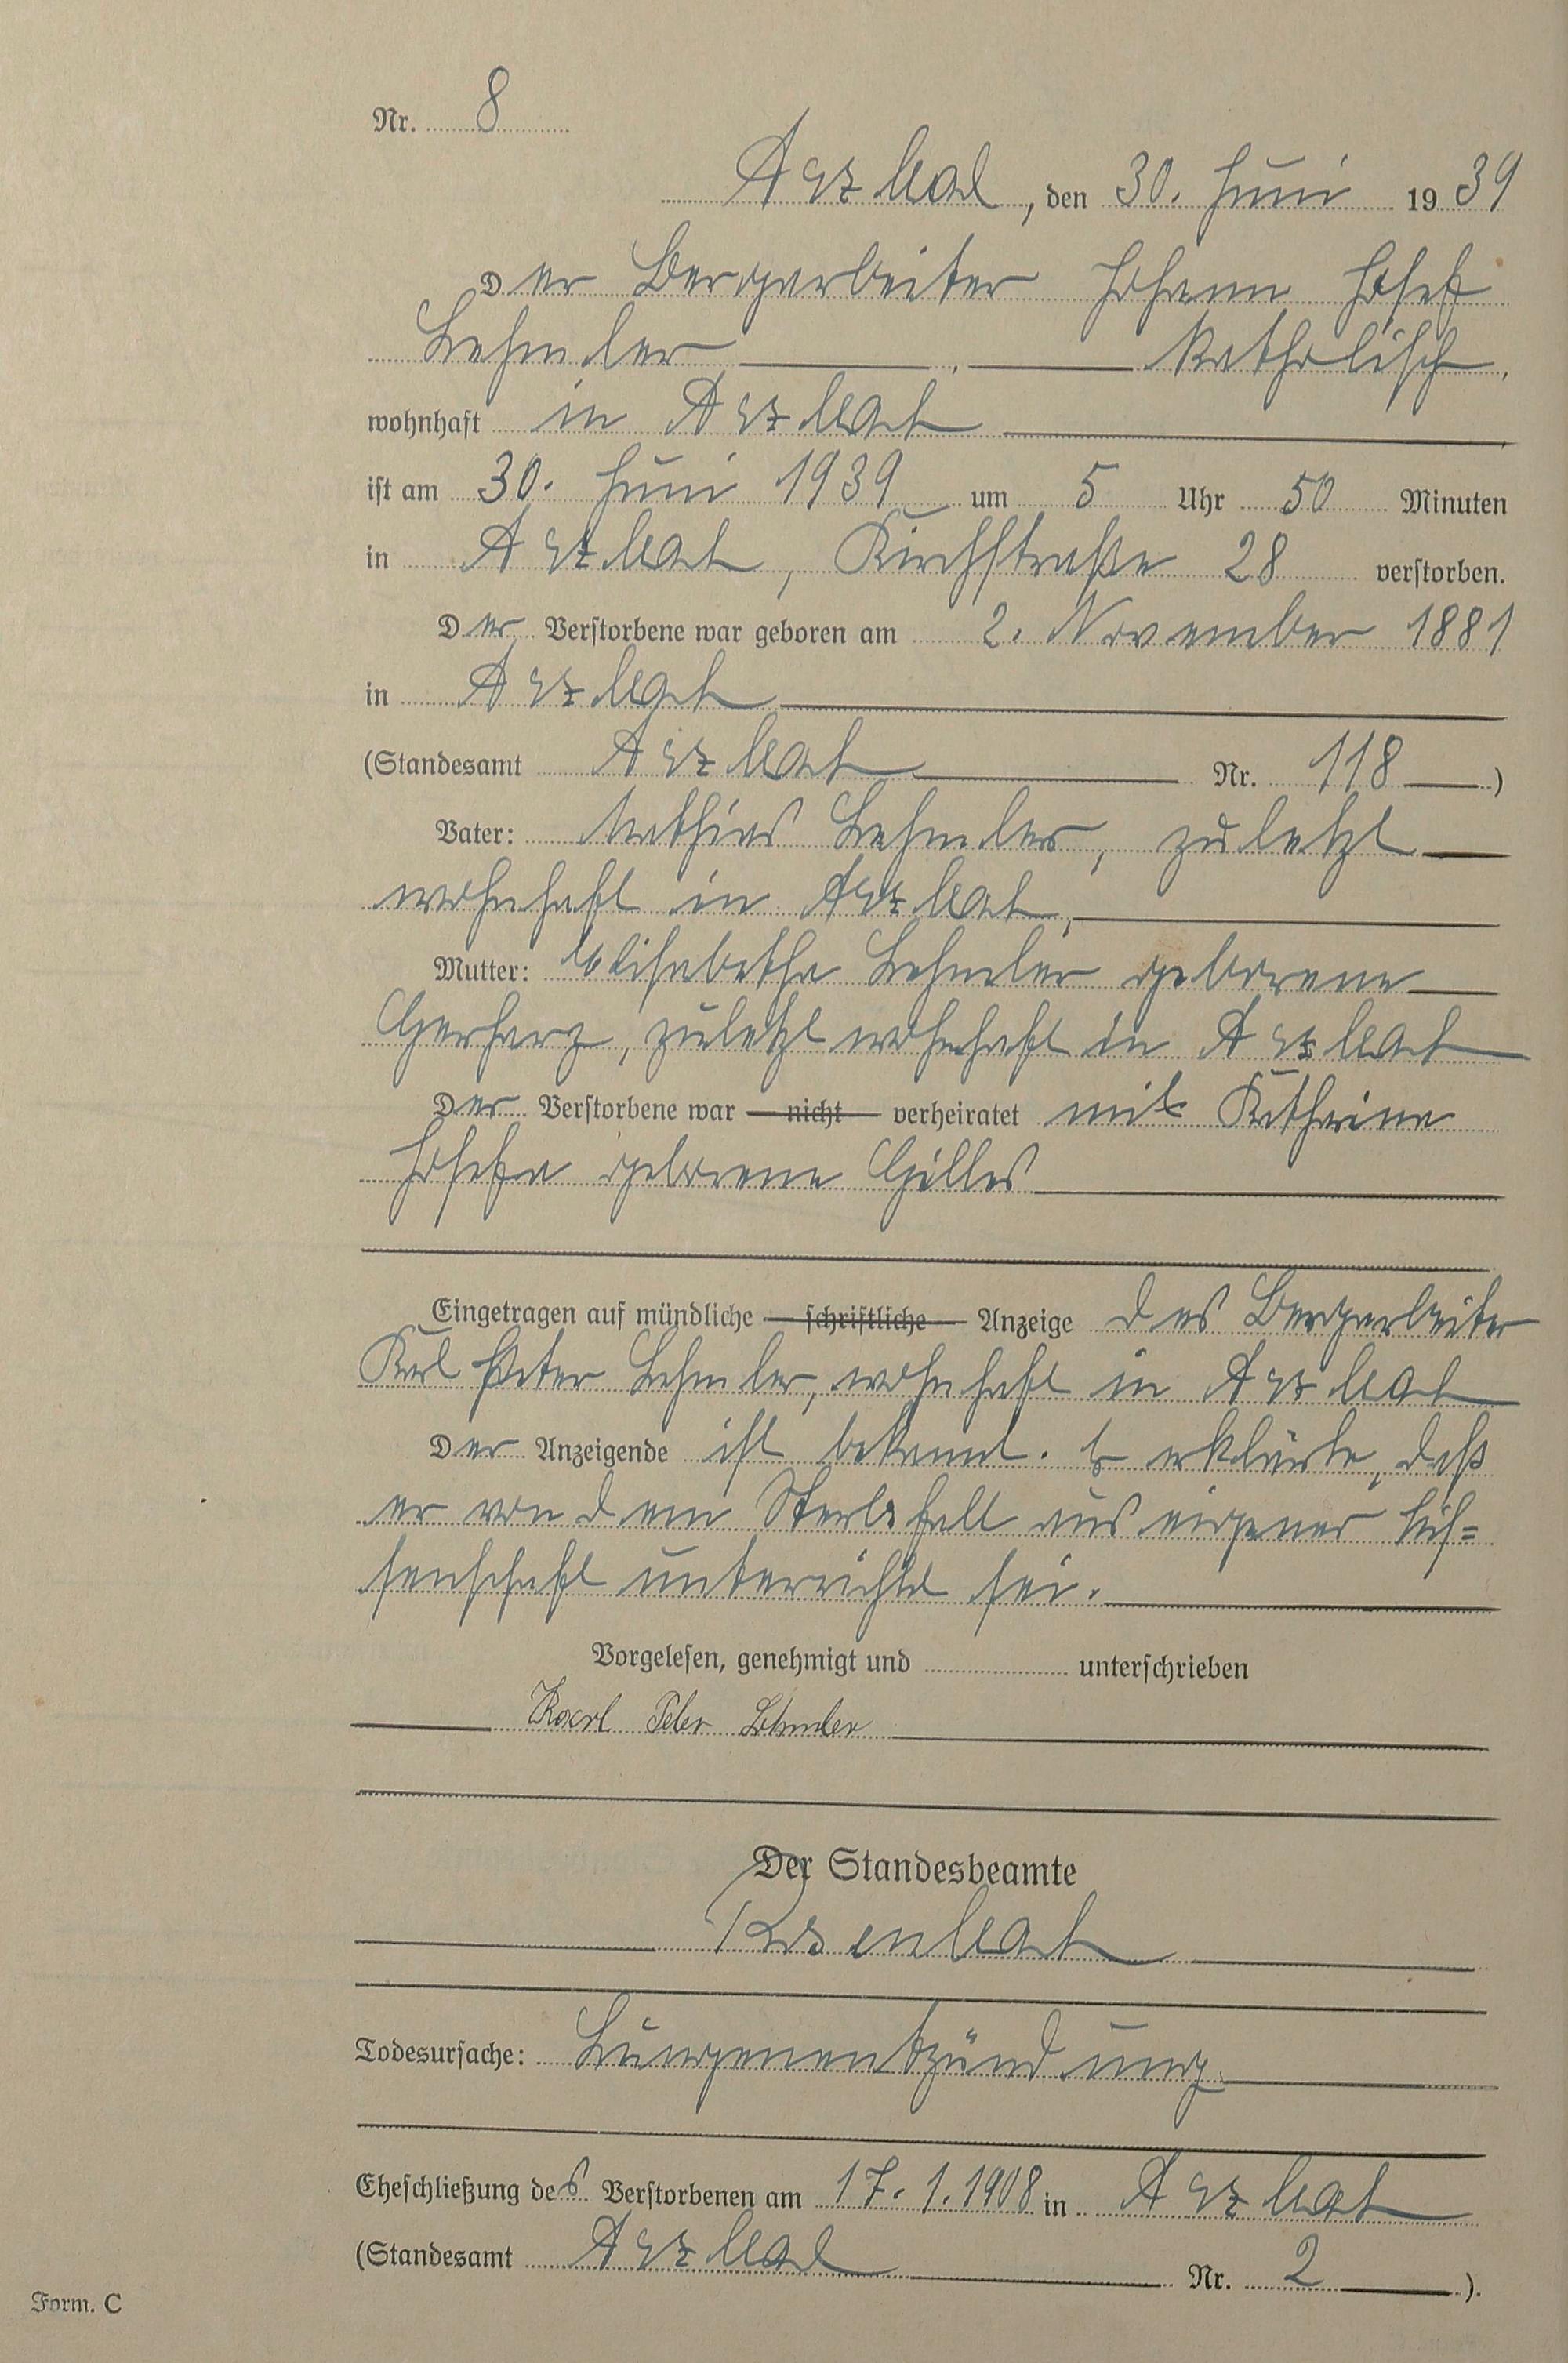 Nr. 8
Arzbach, den 30. Juni 1939
Der Bergarbeiter Johann Josef
Lehmler, katholisch,
wohnhaft in Arzbach
ist am 30. Juni 1939 um 5 Uhr 50 Minuten
in Arzbach, Kirchstraße 28 verstorben.
Der Verstorbene war geboren am 2. November 1881
in Arzbach
(Standesamt Arzbach Nr. 118)
Vater: Mathias Lehmler, zuletzt
wohnhaft in Arzbach,
Mutter: Elisabetha Lehmler geborene
Gerharz, zuletzt wohnhaft in Arzbach
Der Verstorbene war nicht verheiratet mit Katharina
Josefa geborene Gilles
Eingetragen auf mündliche schriftliche Anzeige des Bergarbeiter
Karl Peter Lehmler, wohnhaft in Arzbach
Der Anzeigende ist bekannt. Er erklärte, daß
er von dem Sterbefall aus eigener Wis=
senschaft unterrichtet sei.
Vorgelesen, genehmigt und unterschrieben
Karl Peter Lehmler
Der Standesbeamte
Rosenbach
Todesursache: Lungenentzündung.
Eheschließung des Verstorbenen am 17.1.1908 in Arzbach
(Standesamt Arzbach Nr. 2).
Form. C